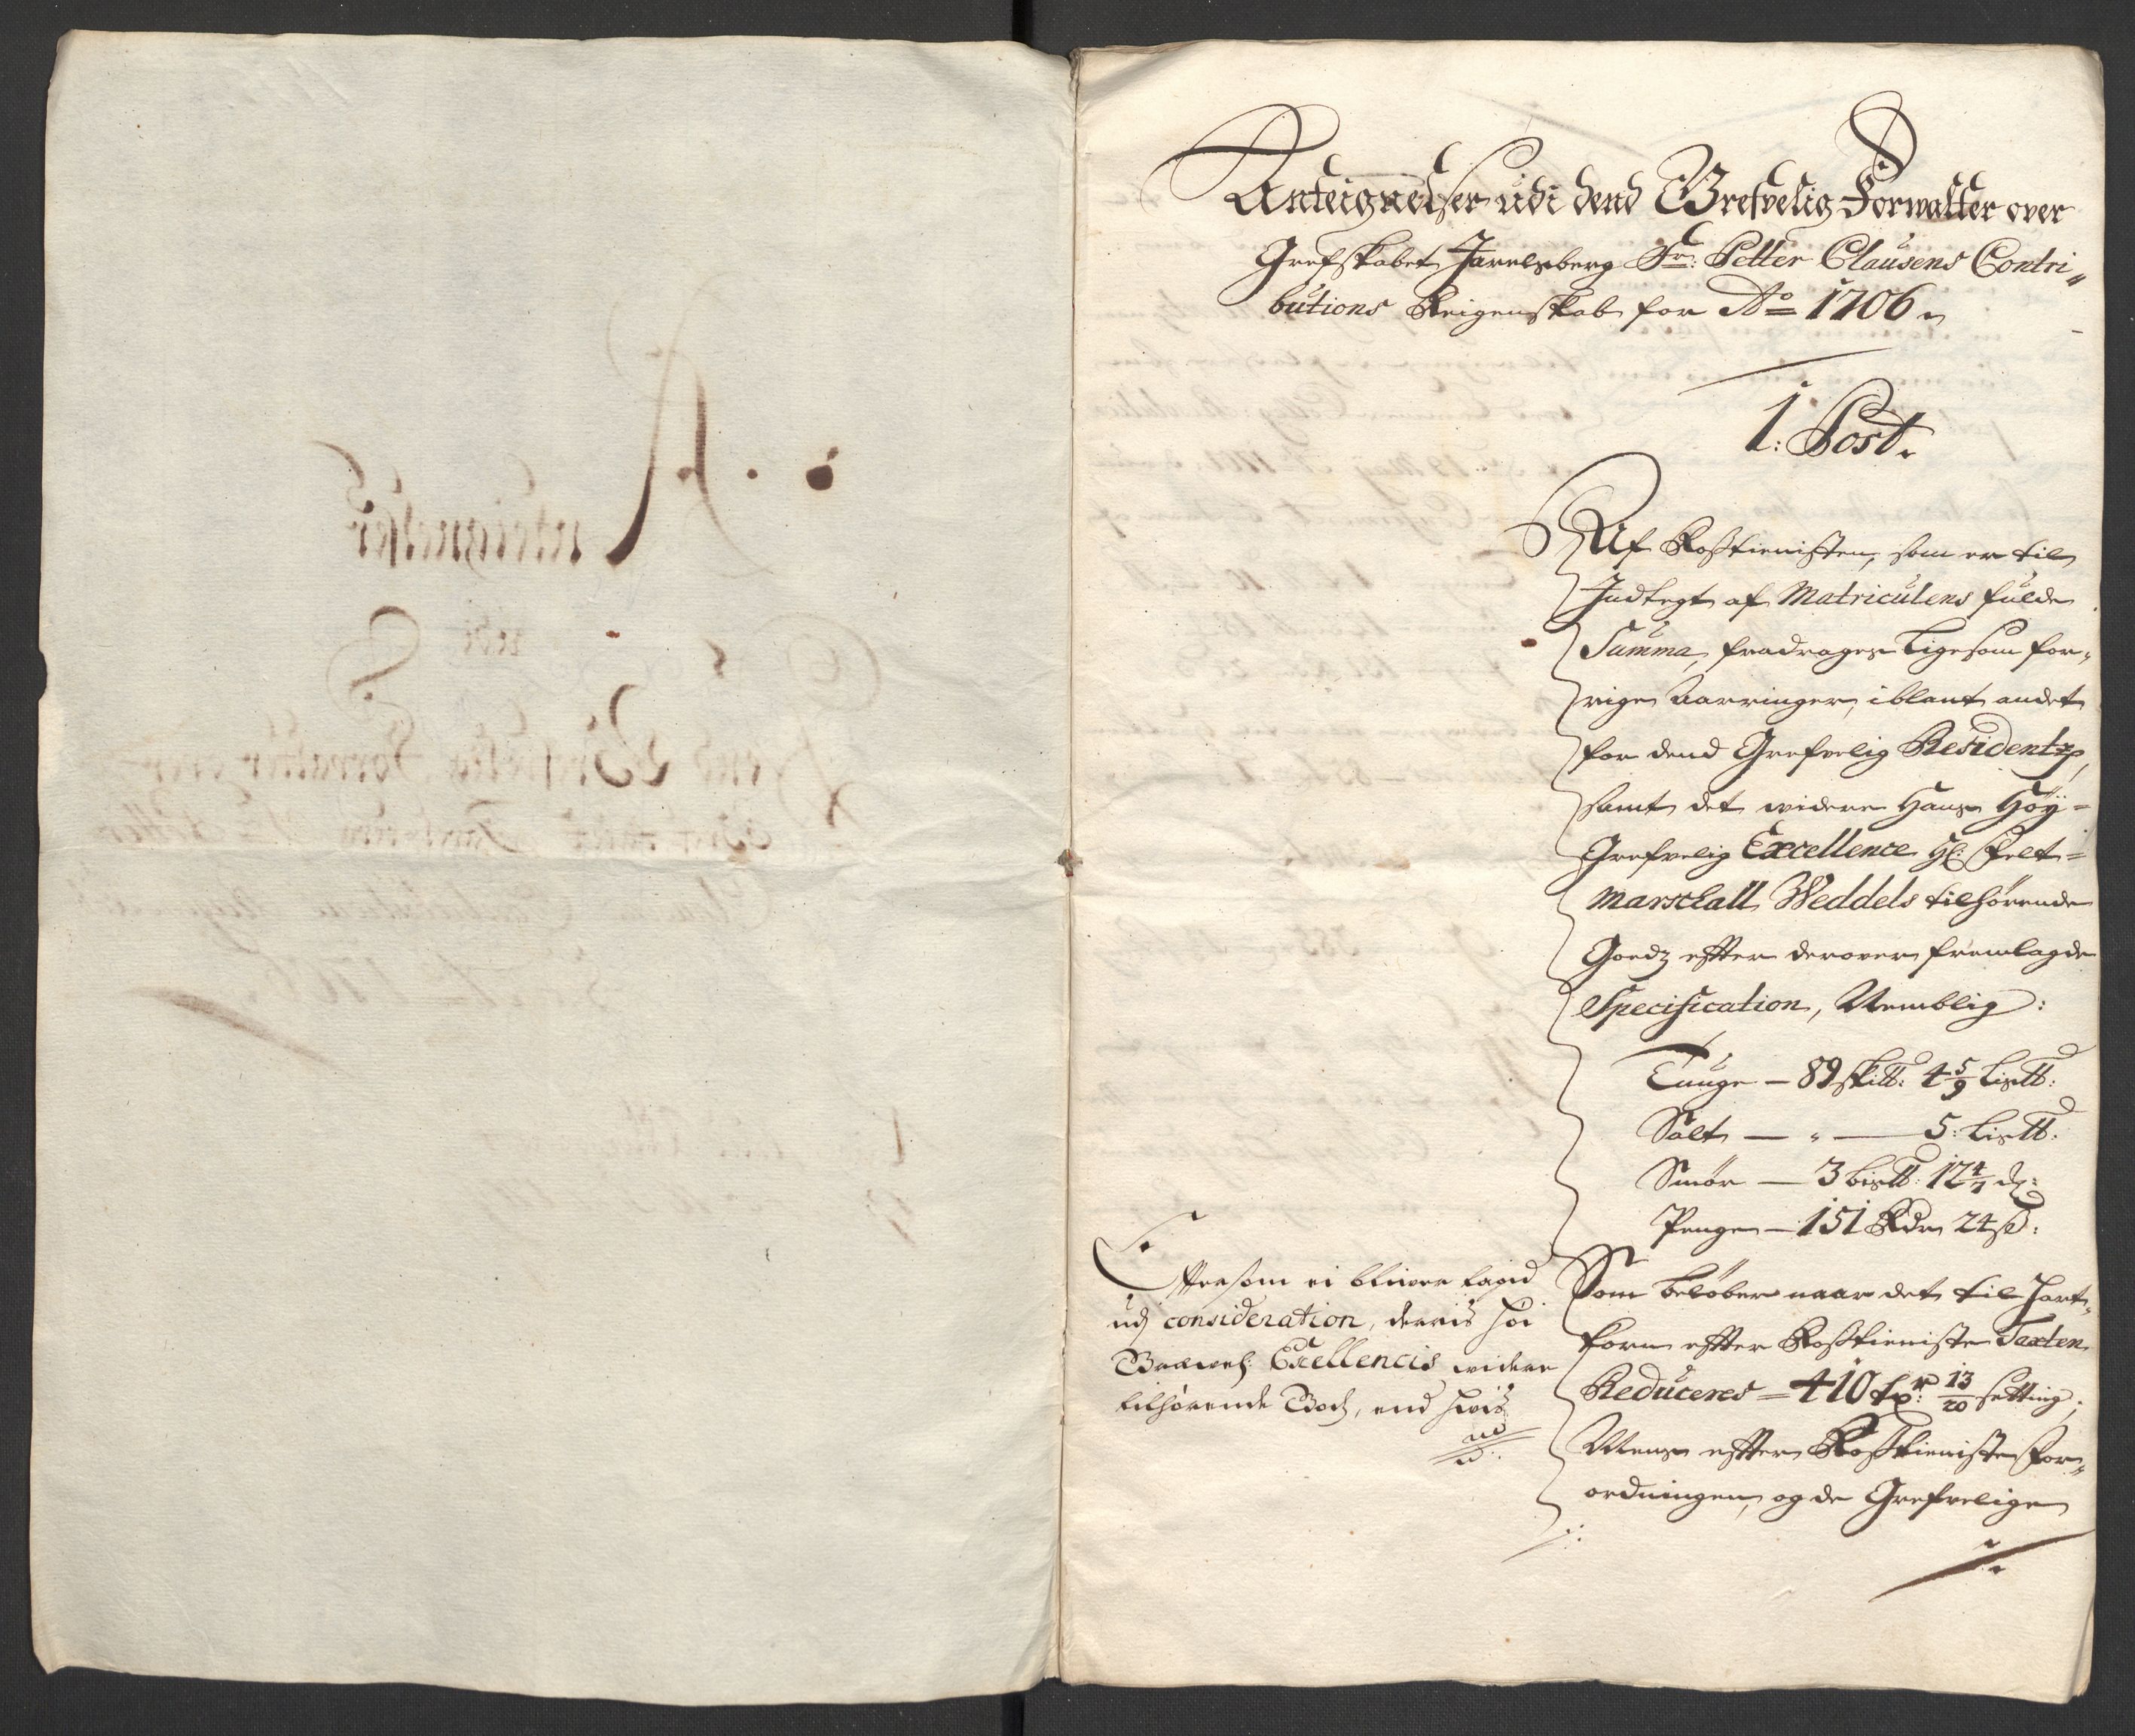 Anteignelser udi dend Grefvelig Forwalter over
Grefskabet Jarelsberg Sr: Petter Clausens Contri„
butions Reigenskab for Ao 1706„
1: Post.
Af Rostienisten, som er til
Indtegt af Matriculens fulde
Summa, fradrages ligesom for„
rige Aarringer, iblant andet
for dend Grefvelig Residentz,
samt det widere Hans Höy=
Grefvelig Excellence Hl: Felt=
marschall Weddels tilhörende
Goedz efter derover fremlagde
Specification, Nemblig:
Tunge — 89 sk℔: 4 5/9 Lis℔:
Salt — „ — 5: Lis℔:
Smör — 3 bis℔: 12 4/7
Penge — 151 Rdr 24 s:
Som belöber naar det til Hart„
korn efter Rostieniste Taxten
Reduceres = 410 13/20 setting;
Mens efter Rostieniste For„
ordningen, og de Grefvelige
Effersom ei bliver tagid
udj consideration, derris höi
Excellencis widere
tilhörende Godz, end hvis